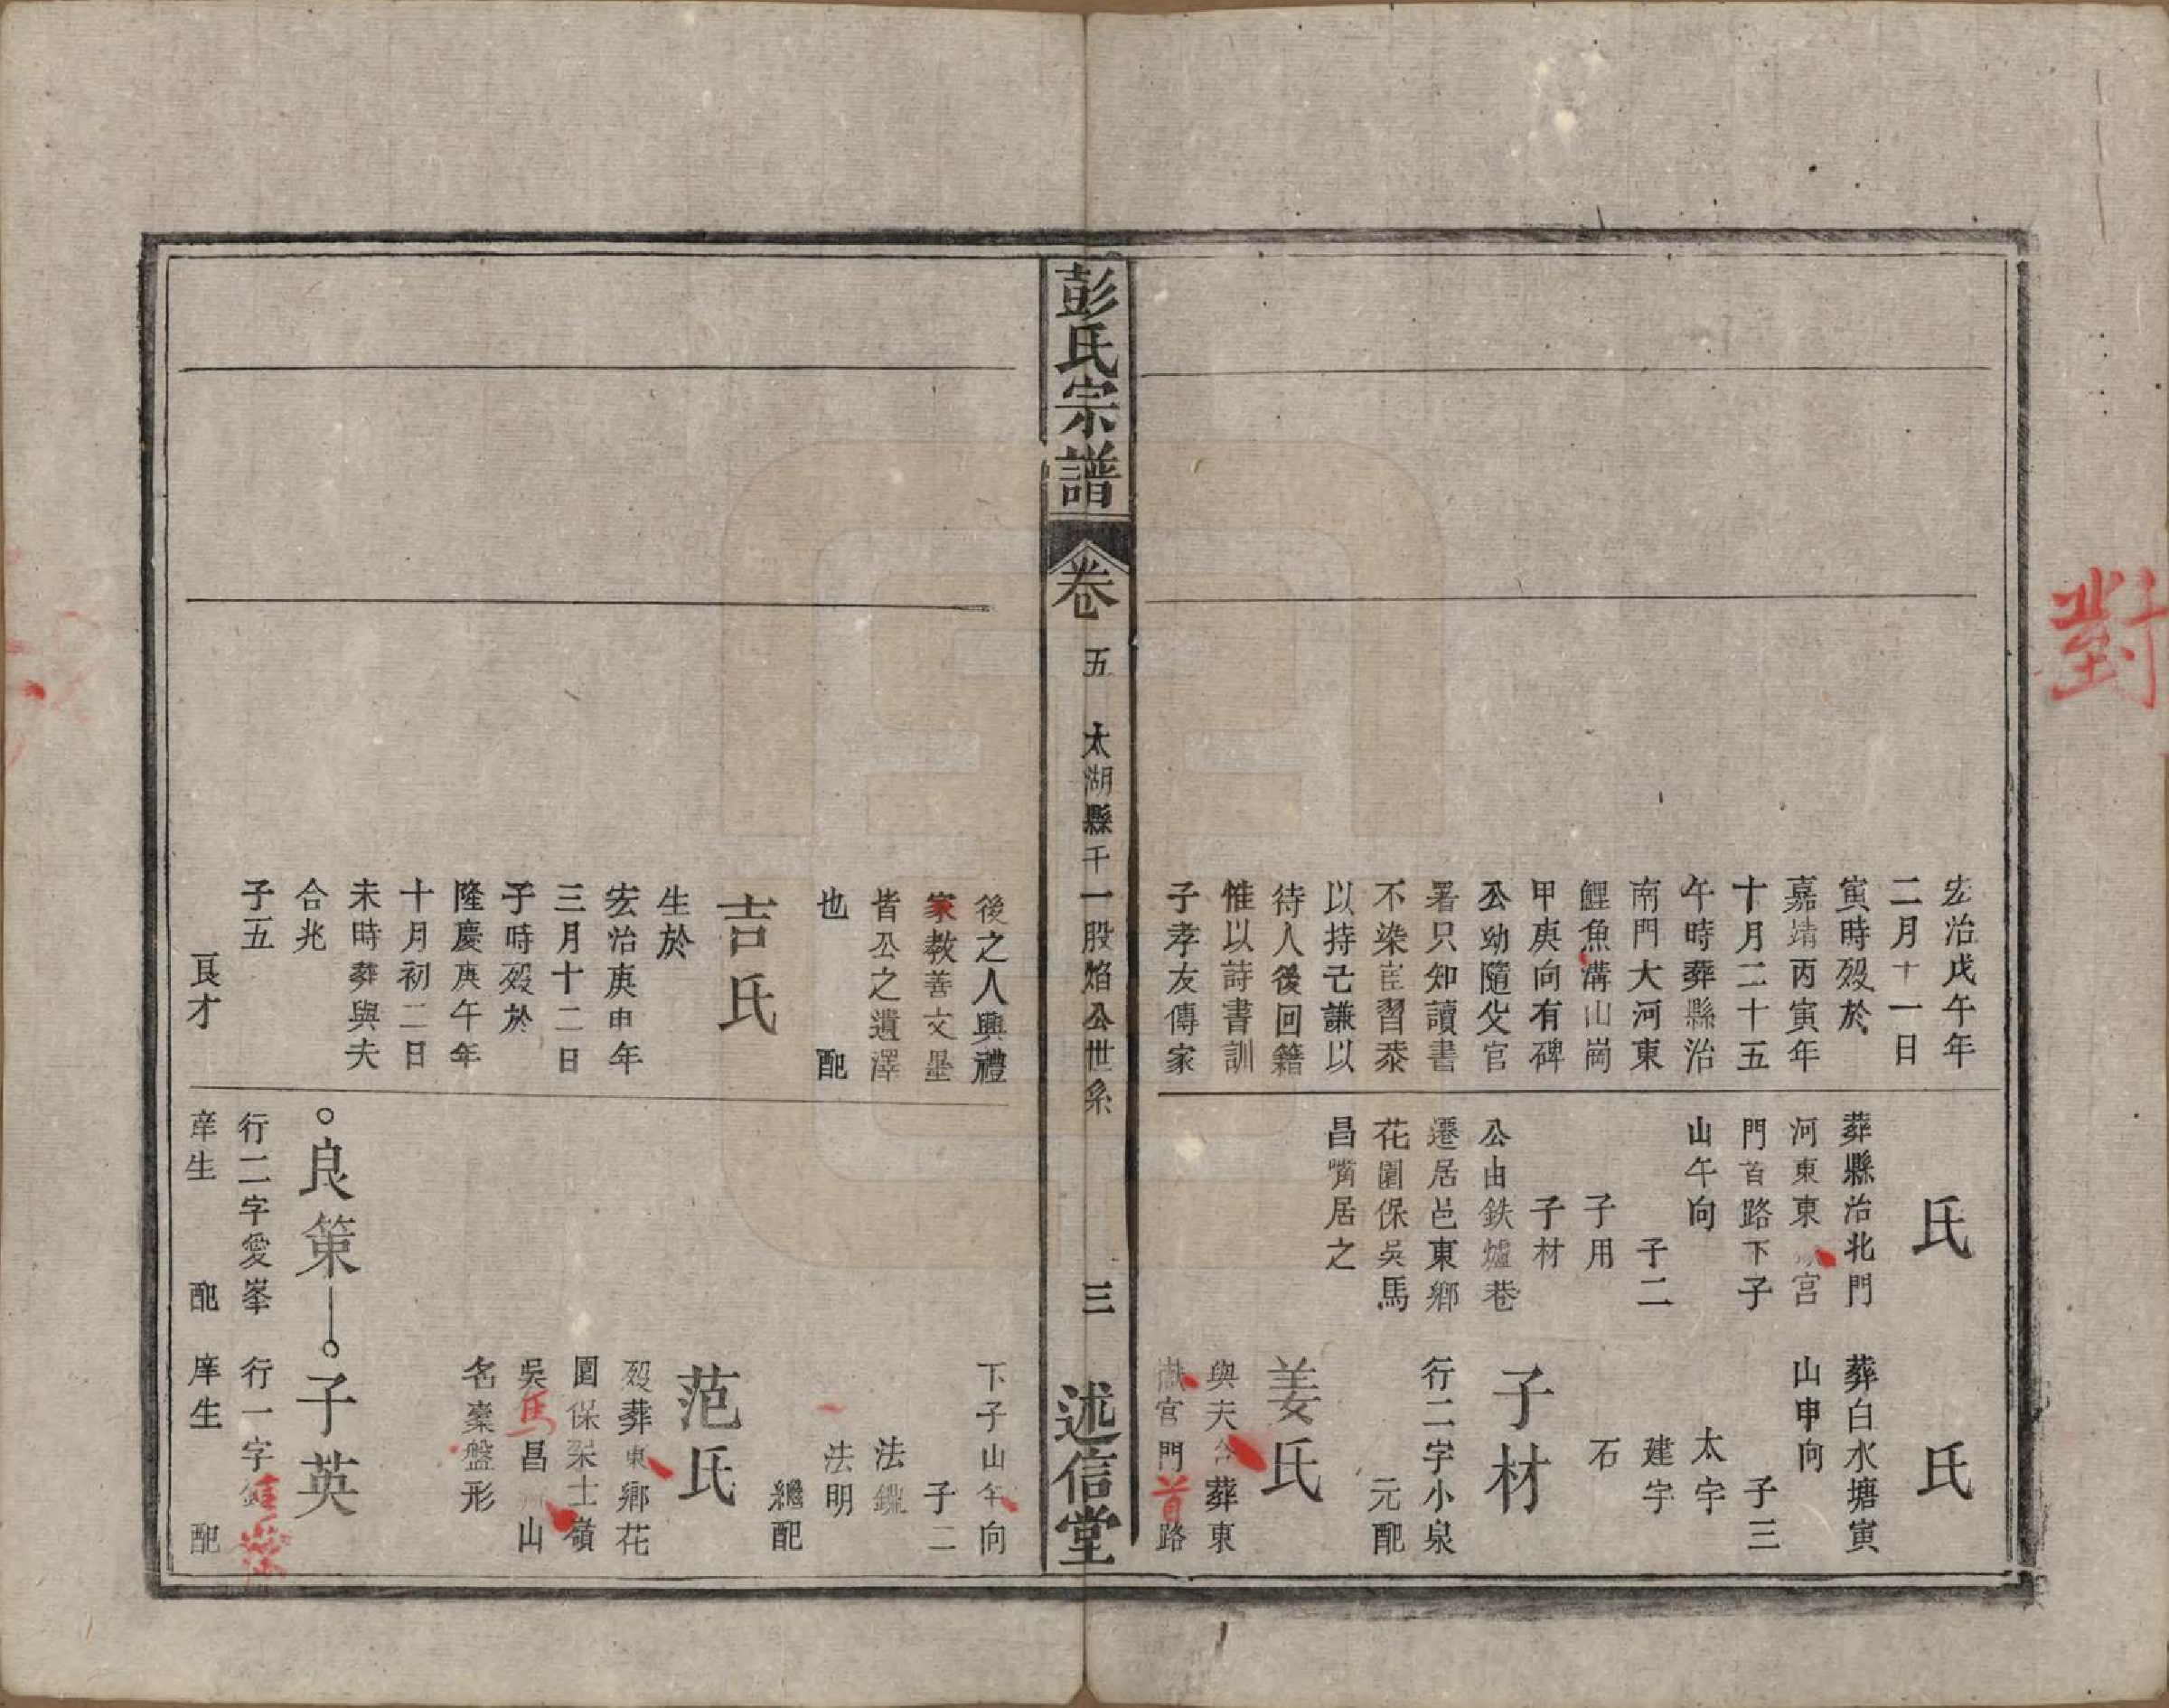 對
宏治戊午年
二月十一日
寅時殁於
嘉靖丙寅年
十月二十五
午時葬縣治
南門大河東
鯉魚溝山崗
甲庚向有碑
公幼隨父官
署只知讀書
不染宦習泰
以持己謙以
待人後回籍
惟以詩書訓
子孝友傳家
氏
葬縣治北門
河東東 宮
門首路下子
山午向
子二
子用
子材
公由鉄爐巷
遷居邑東鄉
花園保吳馬
昌嘴居之
氏
葬白水塘寅
山申向
子三
太宇
建宇
石
子材
行二字小泉
元配
姜氏
與夫合葬東
嶽宮門首路
彭氏宗譜
卷
五
太湖縣千一股焰公世系
三
述信堂
後之人興禮
家教善文墨
皆公之遺澤
也 配
吉氏
生於
宏治庚申年
三月十二日
子時殁於
隆慶庚午年
十月初二日
未時葬與夫
合兆
子五
良才
下子山午向
子二
法鑑
法明
繼配
范氏
殁葬東鄉花
園保梁士嶺
吳馬昌 山
名棄盤形
良策
行二字愛峯
庠生 配
子英
行一字
庠生 配